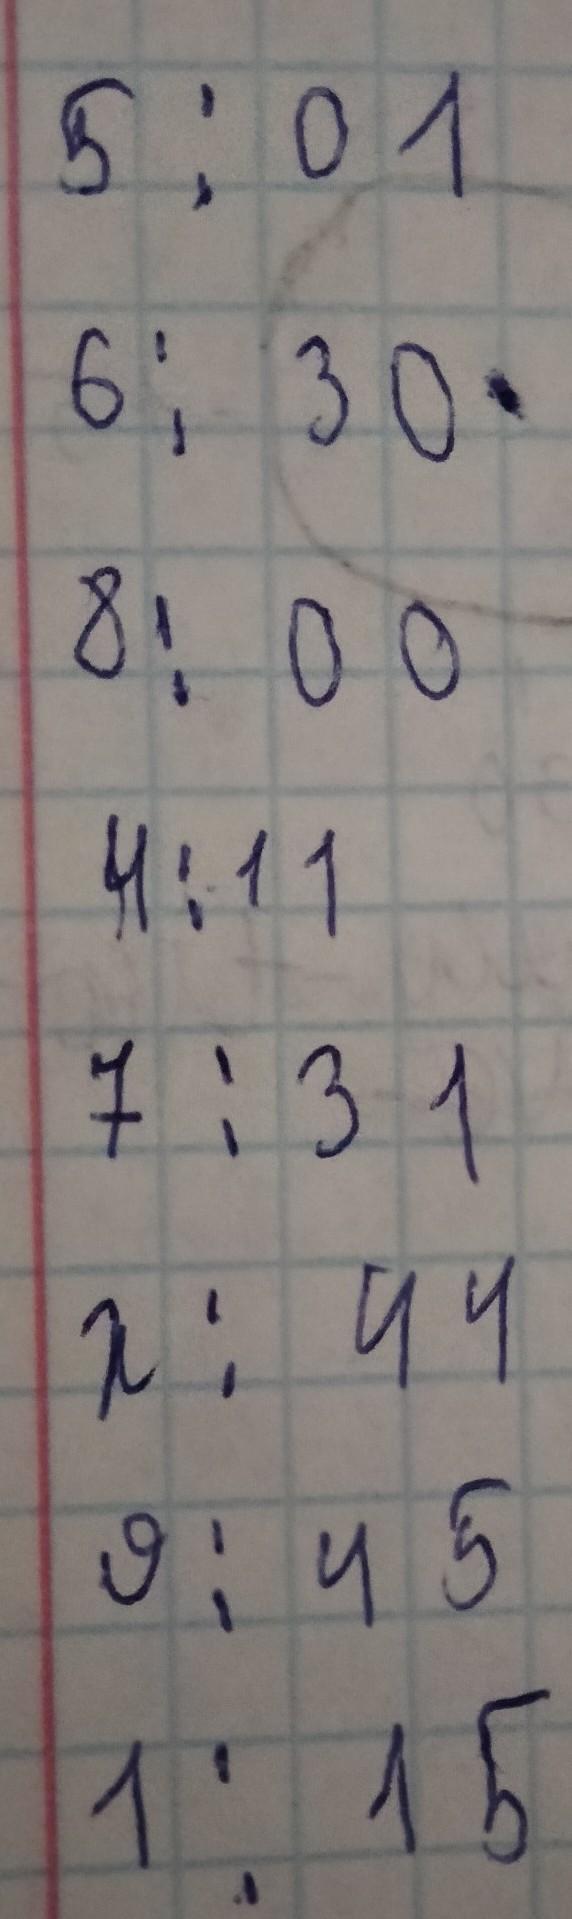 5:01
6:30.
8:00
4:11
7:31
2:44
9:45
1:15